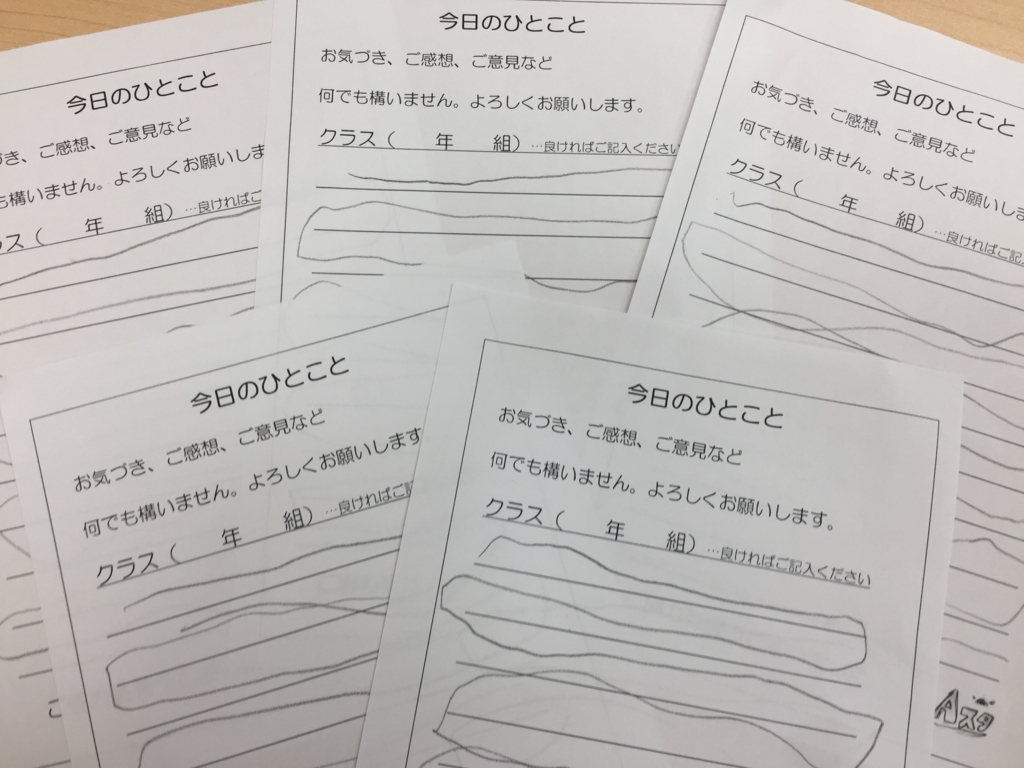 今日のひとこと
お気づき、ご感想、ご意見など
何でも構いません。よろしくお願いします。
クラス(　　年　　組)…良ければご記入ください
今日のひとこと
づき、ご感想、ご意見など
も構いません。よろしくお願いしま
ラス(　　年　　組)…良ければご
今日のひとこと
お気づき、ご感想、ご意見など
何でも構いません。よろしくお願いしま
クラス(　　年　　組)…良ければご記入
今日のひとこと
お気づき、ご感想、ご意見など
何でも構いません。よろしくお願いします
クラス(　　年　　組)…良ければご記
今日のひとこと
お気づき、ご感想、ご意見など
何でも構いません。よろしくお願いします。
クラス(　　年　　組)…良ければご記入ください
こ
スタ